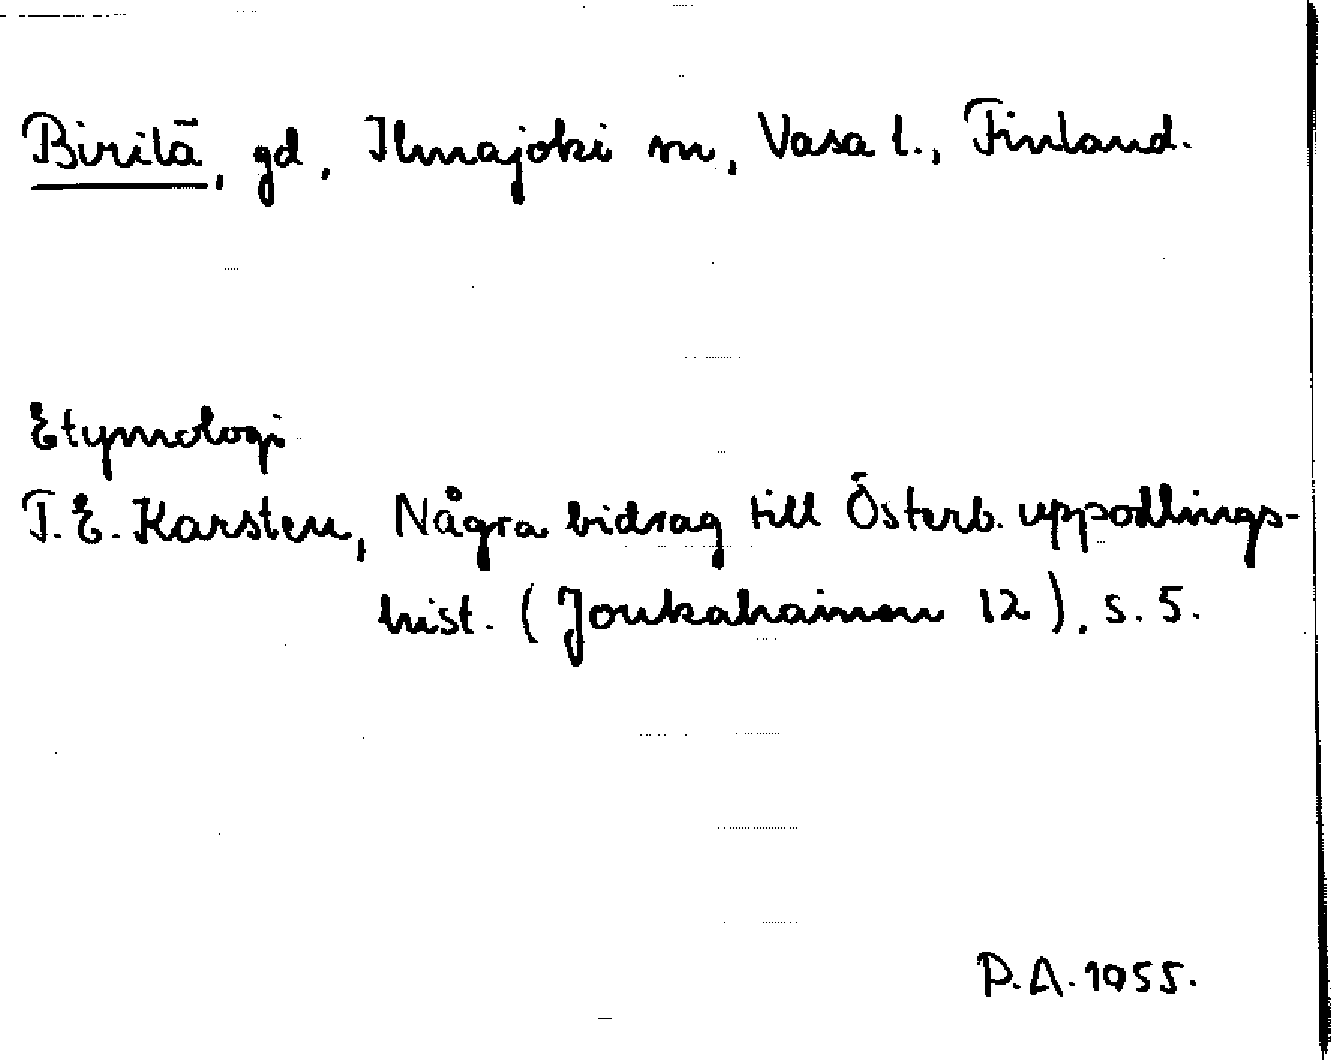 Birilä, gd, Ilmajoki sn, Vasa l., Finland.
Etymologi
T. E. Karsten, Några bidrag till Österb. uppodlings-
hist. (Joukahainen 12), s. 5.
P.A. 1955.